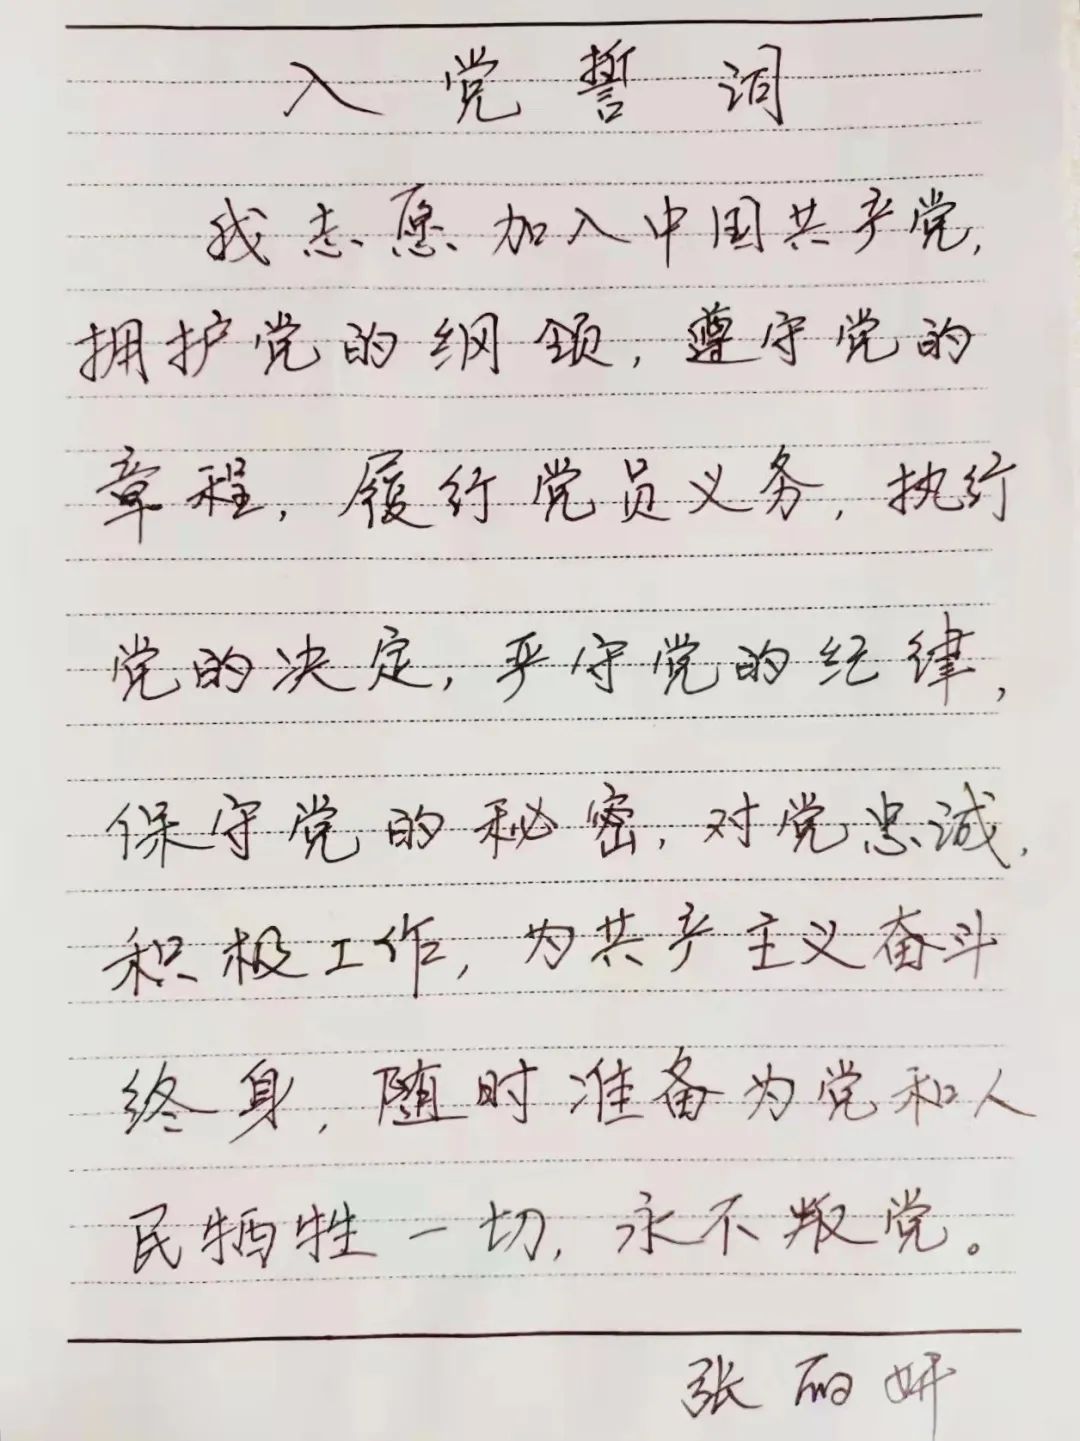 入党誓词
我志愿加入中国共产党,
拥护党的纲领,遵守党的
章程,履行党员义务,执行
党的决定,严守党的纪律,
保守党的秘密,对党忠诚,
积极工作,为共产主义奋斗
终身,随时准备为党和人
民牺牲一切,永不叛党。
张丽妍